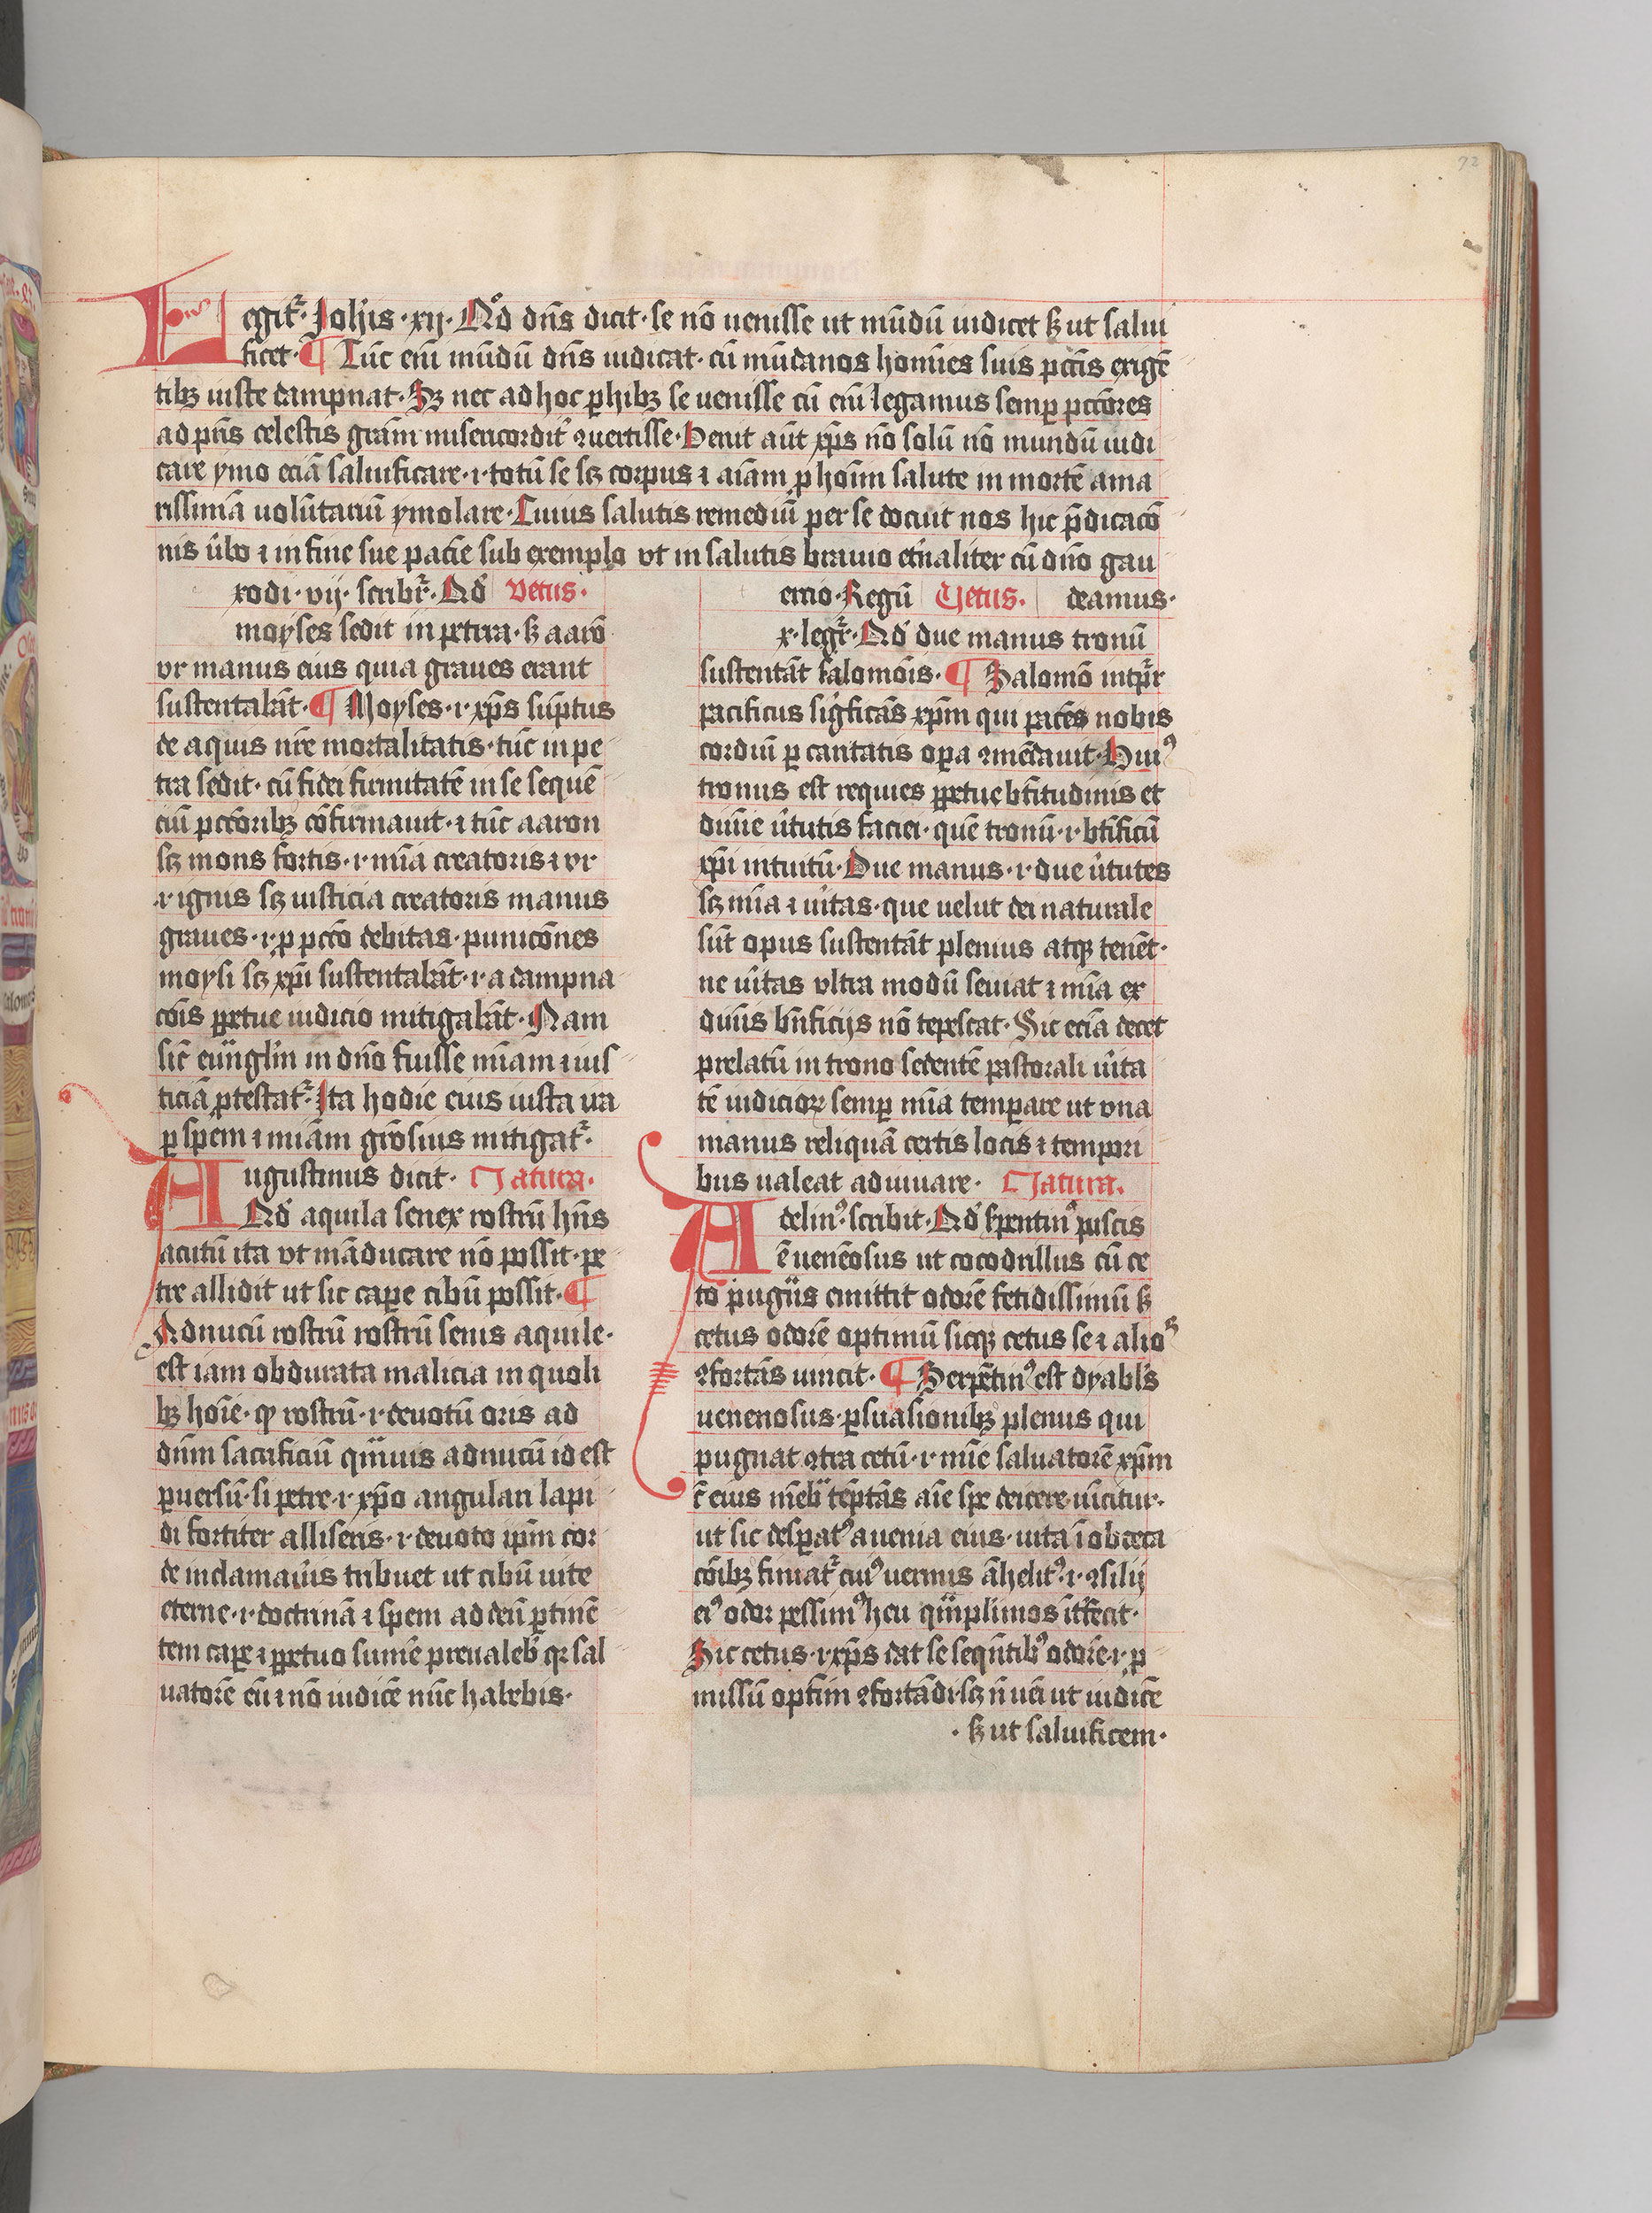 72
Legit᷑ · Joh̄is · xij · Qd̓ dn̄s dicit · se nō uenisse ut mūdū iudicet sꝫ ut salui
ficet · ¶ Tūc eni̅ mūdū dn̄s iudicat · cū mūdanos homi̅es suis pctīs exigē
tibꝫ iuste dampnat · Sꝫ nec ad hoc ꝑhibꝫ se uenisse cū eni̅ legamus semꝑ pctōres
ad pn̄s celestis grām misericordit᷑ ꝯuertisse · Uenit aūt xp̄s nō solū nō mundū iudi
care ymo eciā saluificare · i · totū se sꝫ corpus ⁊ aīam ꝓ hoīm salute in mortē ama
rissimā uolūtariū ymolare · Cuius salutis remediū per se docuit nos hic p̄dicacō
nis u̓bo ⁊ in fine sue pacīe sub exemplo vt in salutis brauio et̓naliter cū dn̄o gau
deamus ·
xodi · vij · scribit᷑ · Qd̓ Vetus ·
moyses sedit in petra · sꝫ aarō
vr manus eius quia graues erant
sustentabāt · ¶ Moyses · i · xp̄s sūptus
de aquis nr̄e mortalitatis · tūc in pe
tra sedit · cū fidei firmitatē in se sequē
ciū pctōribꝫ cōfirmauit · ⁊ tūc aaron
sꝫ mons fortis · i · mīa creatoris ⁊ vr
· i · ignis sꝫ iusticia creatoris manus
graues · i · ꝓ pctō debitas · punicōnes
moysi sꝫ xp̄i sustentabāt · i · a dampna
cōis ꝑpetue iudicio mitigabāt · Nam
sic̄ eūnglīn in dn̄o fuisse mīam ⁊ ius
ticiā ꝓtestat᷑ · Ita hodie eius iusta ira
ꝑ spem ⁊ mīam grōsius mitigat᷑ ·
Augustinus dicit · Natura ·
Qd̓ aquila senex rostrū hn̄s
acutū ita vt māducare nō possit · pe
tre allidit ut sic caꝑe cibū possit · ¶
Aduncū rostrū rostrū senis aquile ·
est iam obdurata malicia in quoli
bꝫ hoīe · qͥ rostrū · i · deuotū oris ad
dn̄m sacrificiū qͣmuis aduncū id est
ꝑuersū · si petre · i · xp̄o angulari lapi
di fortiter alliseris · i · deuoto ip̄m cor
de inclamau̓is tribuet ut cibū uite
eterne · i · doctrinā ⁊ spem ad deū ꝑtinē
tem caꝑe ⁊ ꝑpetuo sumē preualeb̓ qꝛ sal
uatorē eū ⁊ nō iudicē nūc habebis ·
ercio · Regū Vetus ·
x · legit᷑ · Qd̓ due manus tronū
sustentāt salomōis · ¶ Salomō int̓pr̄
pacificus sigͥficās xp̄m qui pacēs nobis
cordiū ꝑ caritatis oꝑa ꝯmēdauit · Huiꝰ
tronus est requies ꝑpetue bt̄itudinis et
diuīe u̓tutis faciei · quē tronū · i · bt̄ificū
xp̄i intuitū · Due manus · i · due u̓tutes
sꝫ mīa ⁊ u̓itas · que uelut dei naturale
sūt opus sustentāt plenius atqꝫ tenēt ·
ne u̓itas vltra modū seuiat ⁊ mīa ex
diuīis bn̄ficijs nō tepescat · Sic eciā decet
prelatū in trono sedentē pastorali u̓ita
tē iudicioꝝ semꝑ mīa temꝑare ut vna
manus reliquā certis locis ⁊ tempori
bus ualeat adiuuare · Natura ·
Adelinꝰ · scribit · Qd̓ s̓pentinꝰ piscis
ē uenēosus ut cocodrillus cū ce
to pugn̄s emittit odorē fetidissimū sꝫ
cetus odorē optimū sicqꝫ cetus se ⁊ alioˢ
ꝯfortās uincit · ¶ Serpētinꝰ est dyabl̓s
uenenosus · ꝑsuasionibꝫ plenus qui
pugnat ꝯtra cetū · i · nūc saluatorē xp̄m
⁊ eius mēbͣ tēptās aīe spe deicere uīcitur ·
ut sic despatꝰ a uenia eius · uita ī obceca
cōibꝫ finiat᷑ cuiꝰ uermis āhelitꝰ · i · ꝯsilij
eiꝰ odor pessimꝰ heu qͣmplimos īt̓fecit ·
Sic cetus · i · xp̄s dat se seqūtibꝰ odorē · i · ꝓ
missū optīm ꝯfortādi · sꝫ n̄ ueī ut iudicē
· sꝫ ut saluificem ·